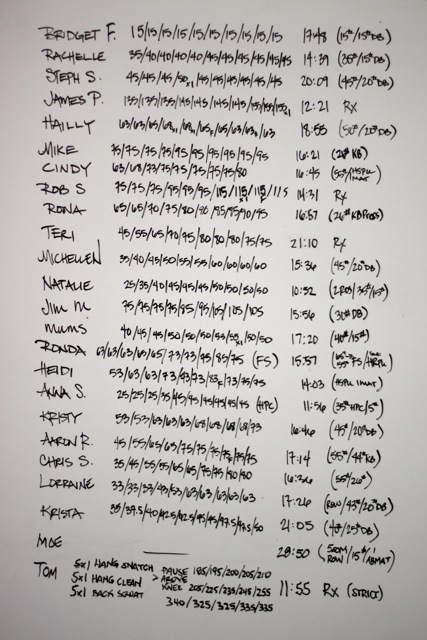 BRIDGET F. 15/15/15/15/15/15/15/15/15/15 17:48 (15#/15#DB)
RACHELLE 35/40/40/40/40/45/45/45/45/45 14:39 (35#/15#DB)
STEPH S. 45/45/45/50x1/45/45/45/45/45 20:09 (45#/20#DB)
JAMES P. 135/135/135/145/145/145/145/155/155/155x1 12:21 RX
HAILLY 63/63/65/68x1/68x1/65x1/65/63/63x1/63 18:55 (50#/20#DB)
MIKE 75/75/75/75/95/95/95/95/95/95 16:21 (26# KB)
CINDY 63/68/73/75/75/75/75/75/80 16:45 (53#/HSPU 1MAT)
ROB S 75/75/75/95/95/95/115/115x1/115F/115 14:31 RX
RONA 65/65/70/75/80/90/95/95/90/95 16:57 (26# KB PRESS)
TERI 45/55/65/70/75/80/80/80/75/75 21:10 RX
MICHELLE N 35/40/45/50/55/55/60/60/60/60 15:36 (45#/20#DB)
NATALIE 25/35/40/45/45/45/50/50/50/50 10:52 (2RDS/35#/15#)
JIM M 75/75/75/75/85/95/105/105/105 15:56 (30# DB)
MUMS 40/45/45/50/50/50/50/55x1/50/50 17:20 (40#/15#)
RONDA 63/63/63/65/65/73/73/75/85/75 (FS) 15:57
HEIDI 53/63/63/73/73/73/83F/73/75/75 14:03 (HSPU 1MAT)
ANNA S. 25/25/25/35/45/45/45/45/45/45 (HPC) 11:56 (35# HPC/5#)
KRISTY 53/53/63/63/63/68/68/68/68/73 16:46 (45#/20#DB)
AARON R. 45/55/65/65/75/75/75/75/75/75 17:14 (55#/44#KB)
CHRIS S. 35/45/55/55/65/65/75/75/80/80 16:36 (55#/26#)
LORRAINE 33/33/33/43/53/63/63/63/63/63 17:26 (ROW/43#/20#DB)
KRISTA 35/37.5/40/42.5/42.5/45/45/47.5/47.5/50 21:05 (40#/25#DB)
MOE ——— 28:50 (500M ROW/15#/1 ABMAT)
TOM 5x1 HANG SNATCH PAUSE 185/195/200/205/210
5x1 HANG CLEAN > ABOVE KNEE 205/225/235/245/255 11:55 RX (STRICT)
5x1 BACK SQUAT 340/325/325/335/335